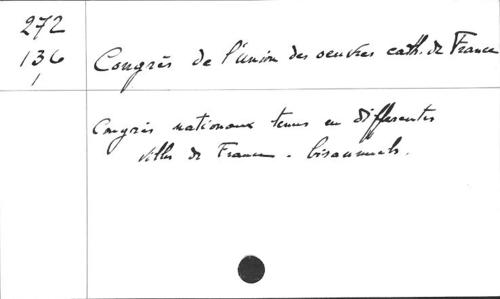 272
136
1
Congrès de l'union des oeuvres cath. de France
Congrès nationaux tenus en différentes
villes de France. bisannuels.